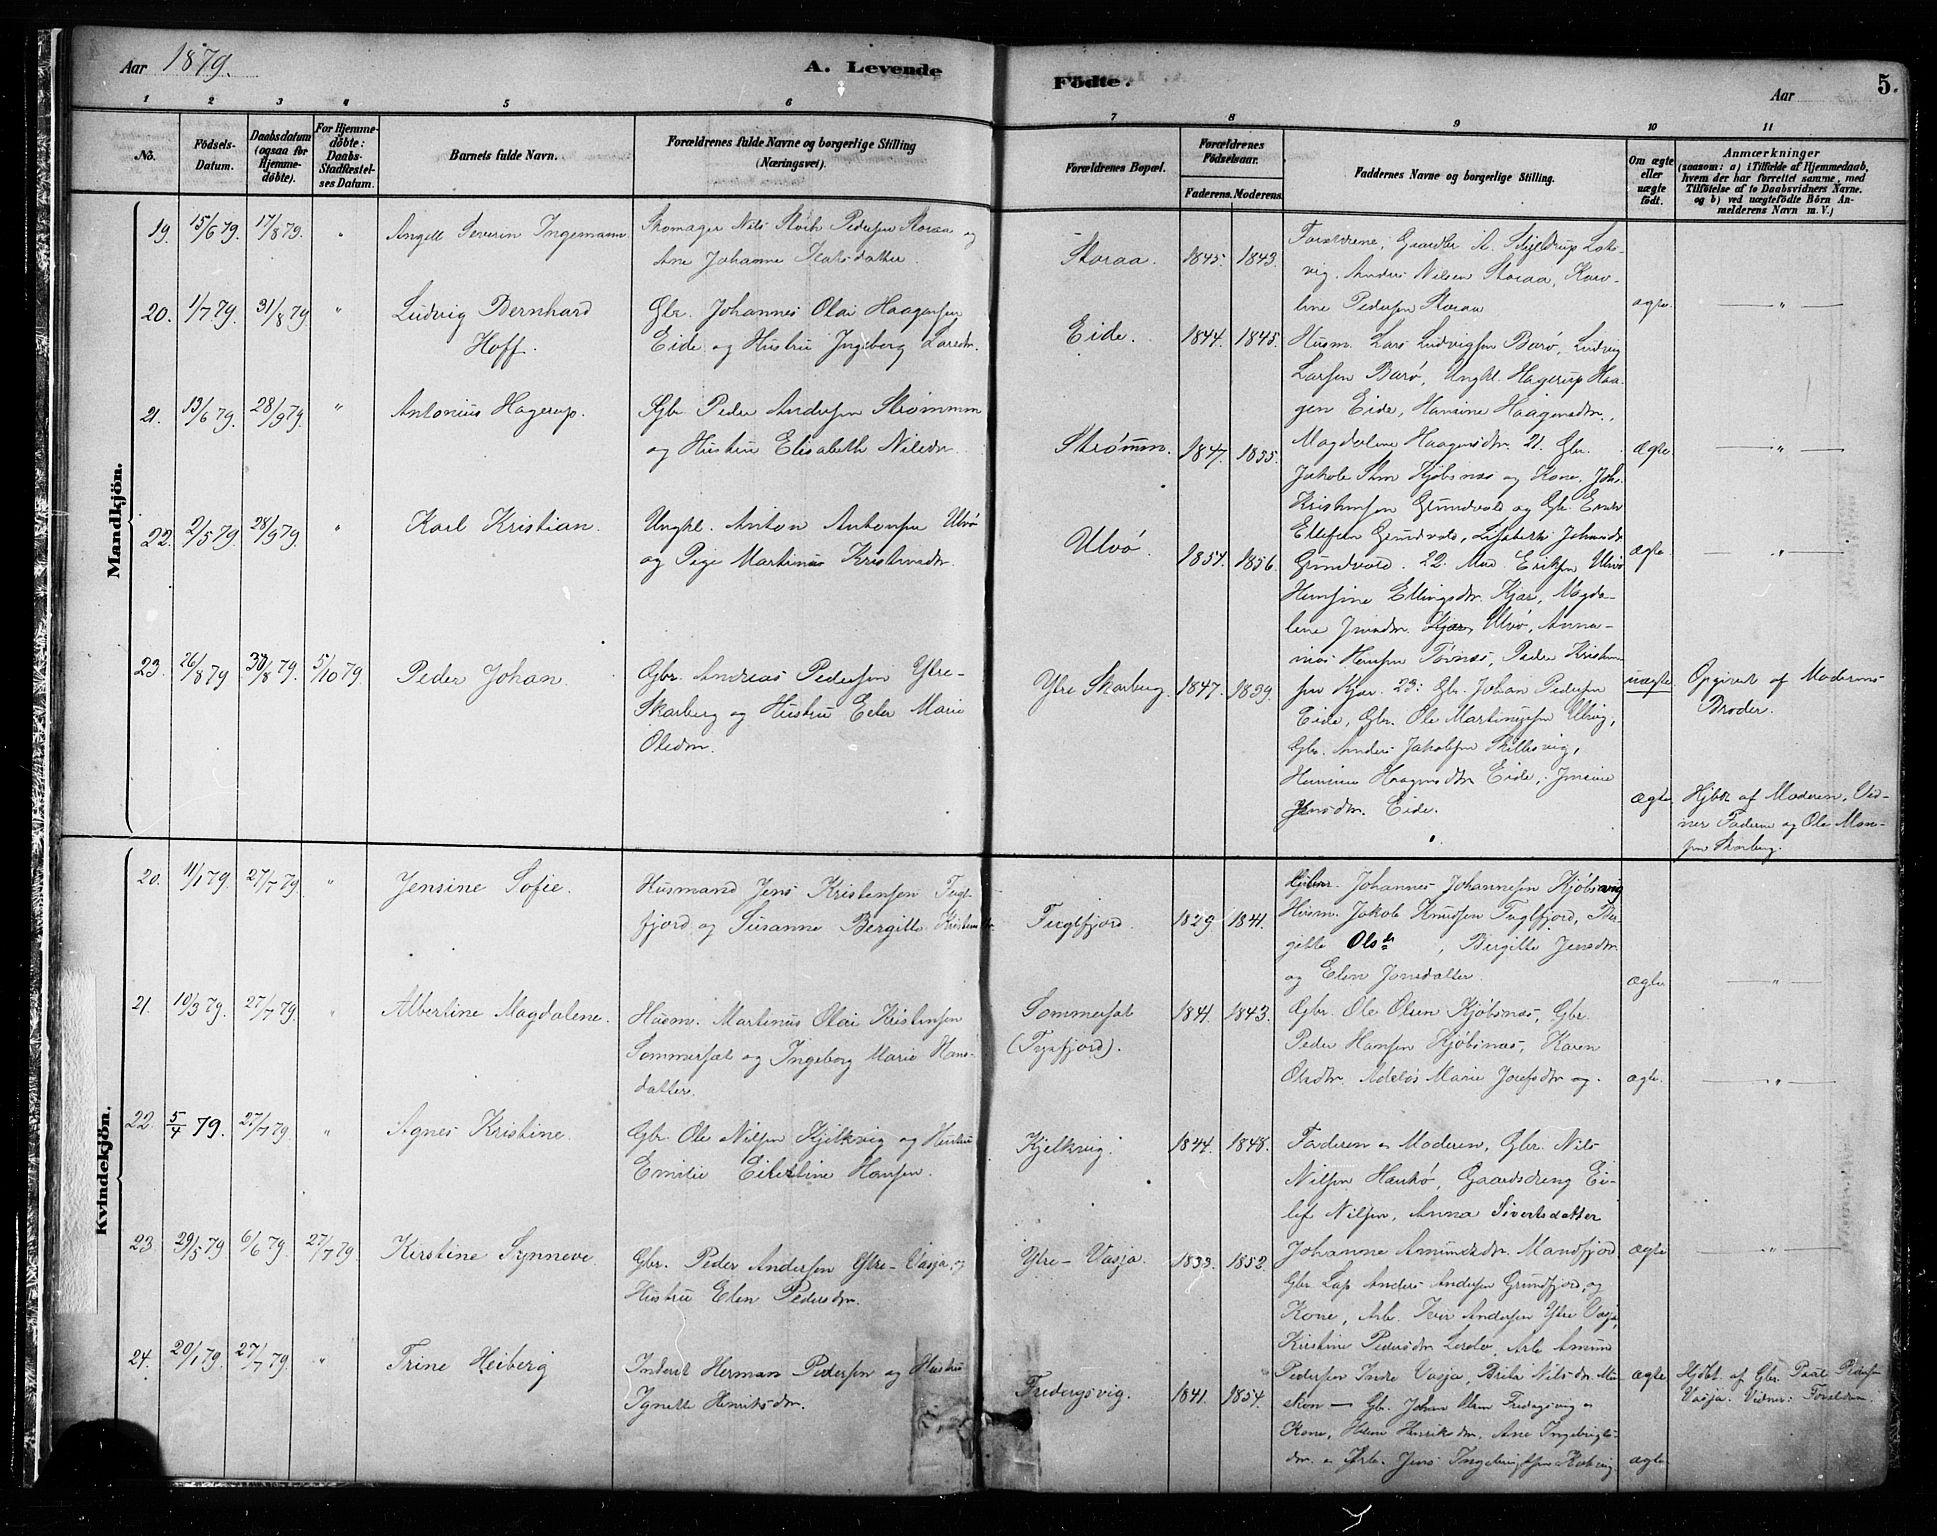 Aar 1879.
A. Levende
Födte.
Aar
5.
1 2 3 4 5 6 7 8 9 10 11
No.
Födsels-
Datum.
Daabsdatum
(ogsaa for
Hjemme-
döbte).
For Hjemme-
döbte:
Daabs-
Stadfæstel-
ses Datum.
Barnets fulde Navn.
Forældrenes fulde Navne og borgerlige Stilling
(Næringsvei).
Forældrenes Bopæl.
Forældrenes
Födselsaar.
Faderens. Moderens.
Faddernes Navne og borgerlige Stilling.
Om ægte
eller
uægte
födt.
Anmærkninger
(saasom: a) i Tilfælde af Hjemmedaab,
hvem der har forrettet samme, med
Tilföielse af to Daabsvidners Navne.
og b) ved uægtefödte Börn An-
melderens Navn m. V.)
Mandkjön.
19. 15/6 79. 17/8 79. " Angell Severin Ingemann
Skomager Nils Pedersen Storaa og
Ane Johanne
Storaa. 1845. 1843.
Forældrene, A. Schjeldrup
Anders Nilsen Storaa, Karo-
line Pedersen Storaa
ægte. — " —
20. 1/7 79. 31/8 79 " Ludvig Bernhard
Hoff.
Gbr. Johannes Olai Haagensen
Eide og Hustru Ingeborg Larsdtr.
Eide. 1844. 1845.
Husm. Lars Ludvigsen Barø, Ludvig
Larsen Barø, Ungkl. Hagerup Haa-
gen Eide, Hansine Haagensdtr.,
Magdalene Haagensdtr. 21. Gbr.
ægte — " —
21. 13/6 79. 28/9 79. " Antonius Hagerup.
Gbr. Peder Andersen Strømmen
og Hustru Elisabeth Nilsdtr.
Strømm. 1847. 1855.
Jakob Kjøbsnæs og Kone, Johs.
Kristensen Grundvold og Gbr.
Ellefsen Grundvold,
22. 2/5 79. 28/9 79. " Karl Kristian.
Ungkl. Anton Antonsen Ulvø
og Pige Martina Kristensdtr.
Ulvø. 1854. 1856.
Grundvold. 22. Mad. Eriksen Ulvø
Hansine Ellingsdtr. Kjær, Magda-
lene Jensdtr. Ulvø, Anna-
nias Hansen Peder Kristen-
sen Kjær. 23: Gbr. Johan Pedersen
ægte — " —
23. 26/8 79 30/8 79. 5/10 79. Peder Johan.
Gbr. Andreas Pedersen Ytre-
Skarberg og Hustru Elen Marie
Olsdtr.
Ytre Skarberg. 1847. 1839.
uægte Opgivet af Moderens
Broder.
Eide, Gbr. Ole Martinussen
Gbr. Anders Jakobsen
Hansine Haagensdtr. Eide,
Jensdtr. Eide.
ægte Hjdt af Moderen, Vid-
ner Faderen og Ole
Skarberg.
Kvindekjön.
20. 11/1 79. 27/7 79 " Jensine Sofie.
Husmand Jens Kristensen Fugl-
fjord og Susanne Bergitte
Fuglfjord. 1829 1841.
Johannes Johannesen Kjøbsvig
Husm. Jakob Knudsen Fuglfjord, Ber-
gitte Olsdr, Bergitte Jensdtr
og Elen Jonsdatter.
ægte — " —
21. 10/3 79. 27/7 79. " Albertine Magdalene.
Husm. Martinus Olai Kristensen
Sommersæt og Ingeborg Marie Hans-
datter.
Sommersæt
(Tysfjord).
1841. 1843.
Gbr. Ole Olsen Kjøbsnæs, Gbr.
Peder Hansen Kjøbsnæs, Karen
Olsdtr., Marie Josefsdtr og.
ægte. — " —
22. 5/4 79. 27/7 79. " Agnes Kristine.
Gbr. Ole Nilsen Kjelkvig og Hustru
Emilie Hansen.
Kjelkvig. 1844. 1848.
Faderen & Moderen, Gbr. Nils
Nilsen Gaardsdreng Ei-
lef Nilsen, Anna Sivertsdatter
23. 29/5 79 6/6 79. 27/7 79. Kirstine Synneve.
Gbr. Peder Andersen Ytre-Vasja og
Hustru Elen Pedersdtr.
Ytre-Vasja. 1833. 1852.
Johanne Amundsdtr. Mandfjord
ægte — " —
Gbr. Anders Andersen Grundfjord, og
Kone, Arb. Iver Andersen Ytre Vasja,
Kristine Pedersdtr. Arb. Amund
24. 20/1 79. 27/7 79. " Trine Heiberg
Inderst Herman Pedersen og Hustru
Henriksdtr.
Fredergsvig. 1841. 1854.
Pedersen Indre Vasja, Brita Nilsdtr.
ægte Hjdbt. af Gbr. Paal Pedersen
Vasja. Vidner: Forældrene.
Kone, Henriksdtr. Ane Ingebrigts-
dtr. & Arb. Jens Ingebrigtsen
ægte.